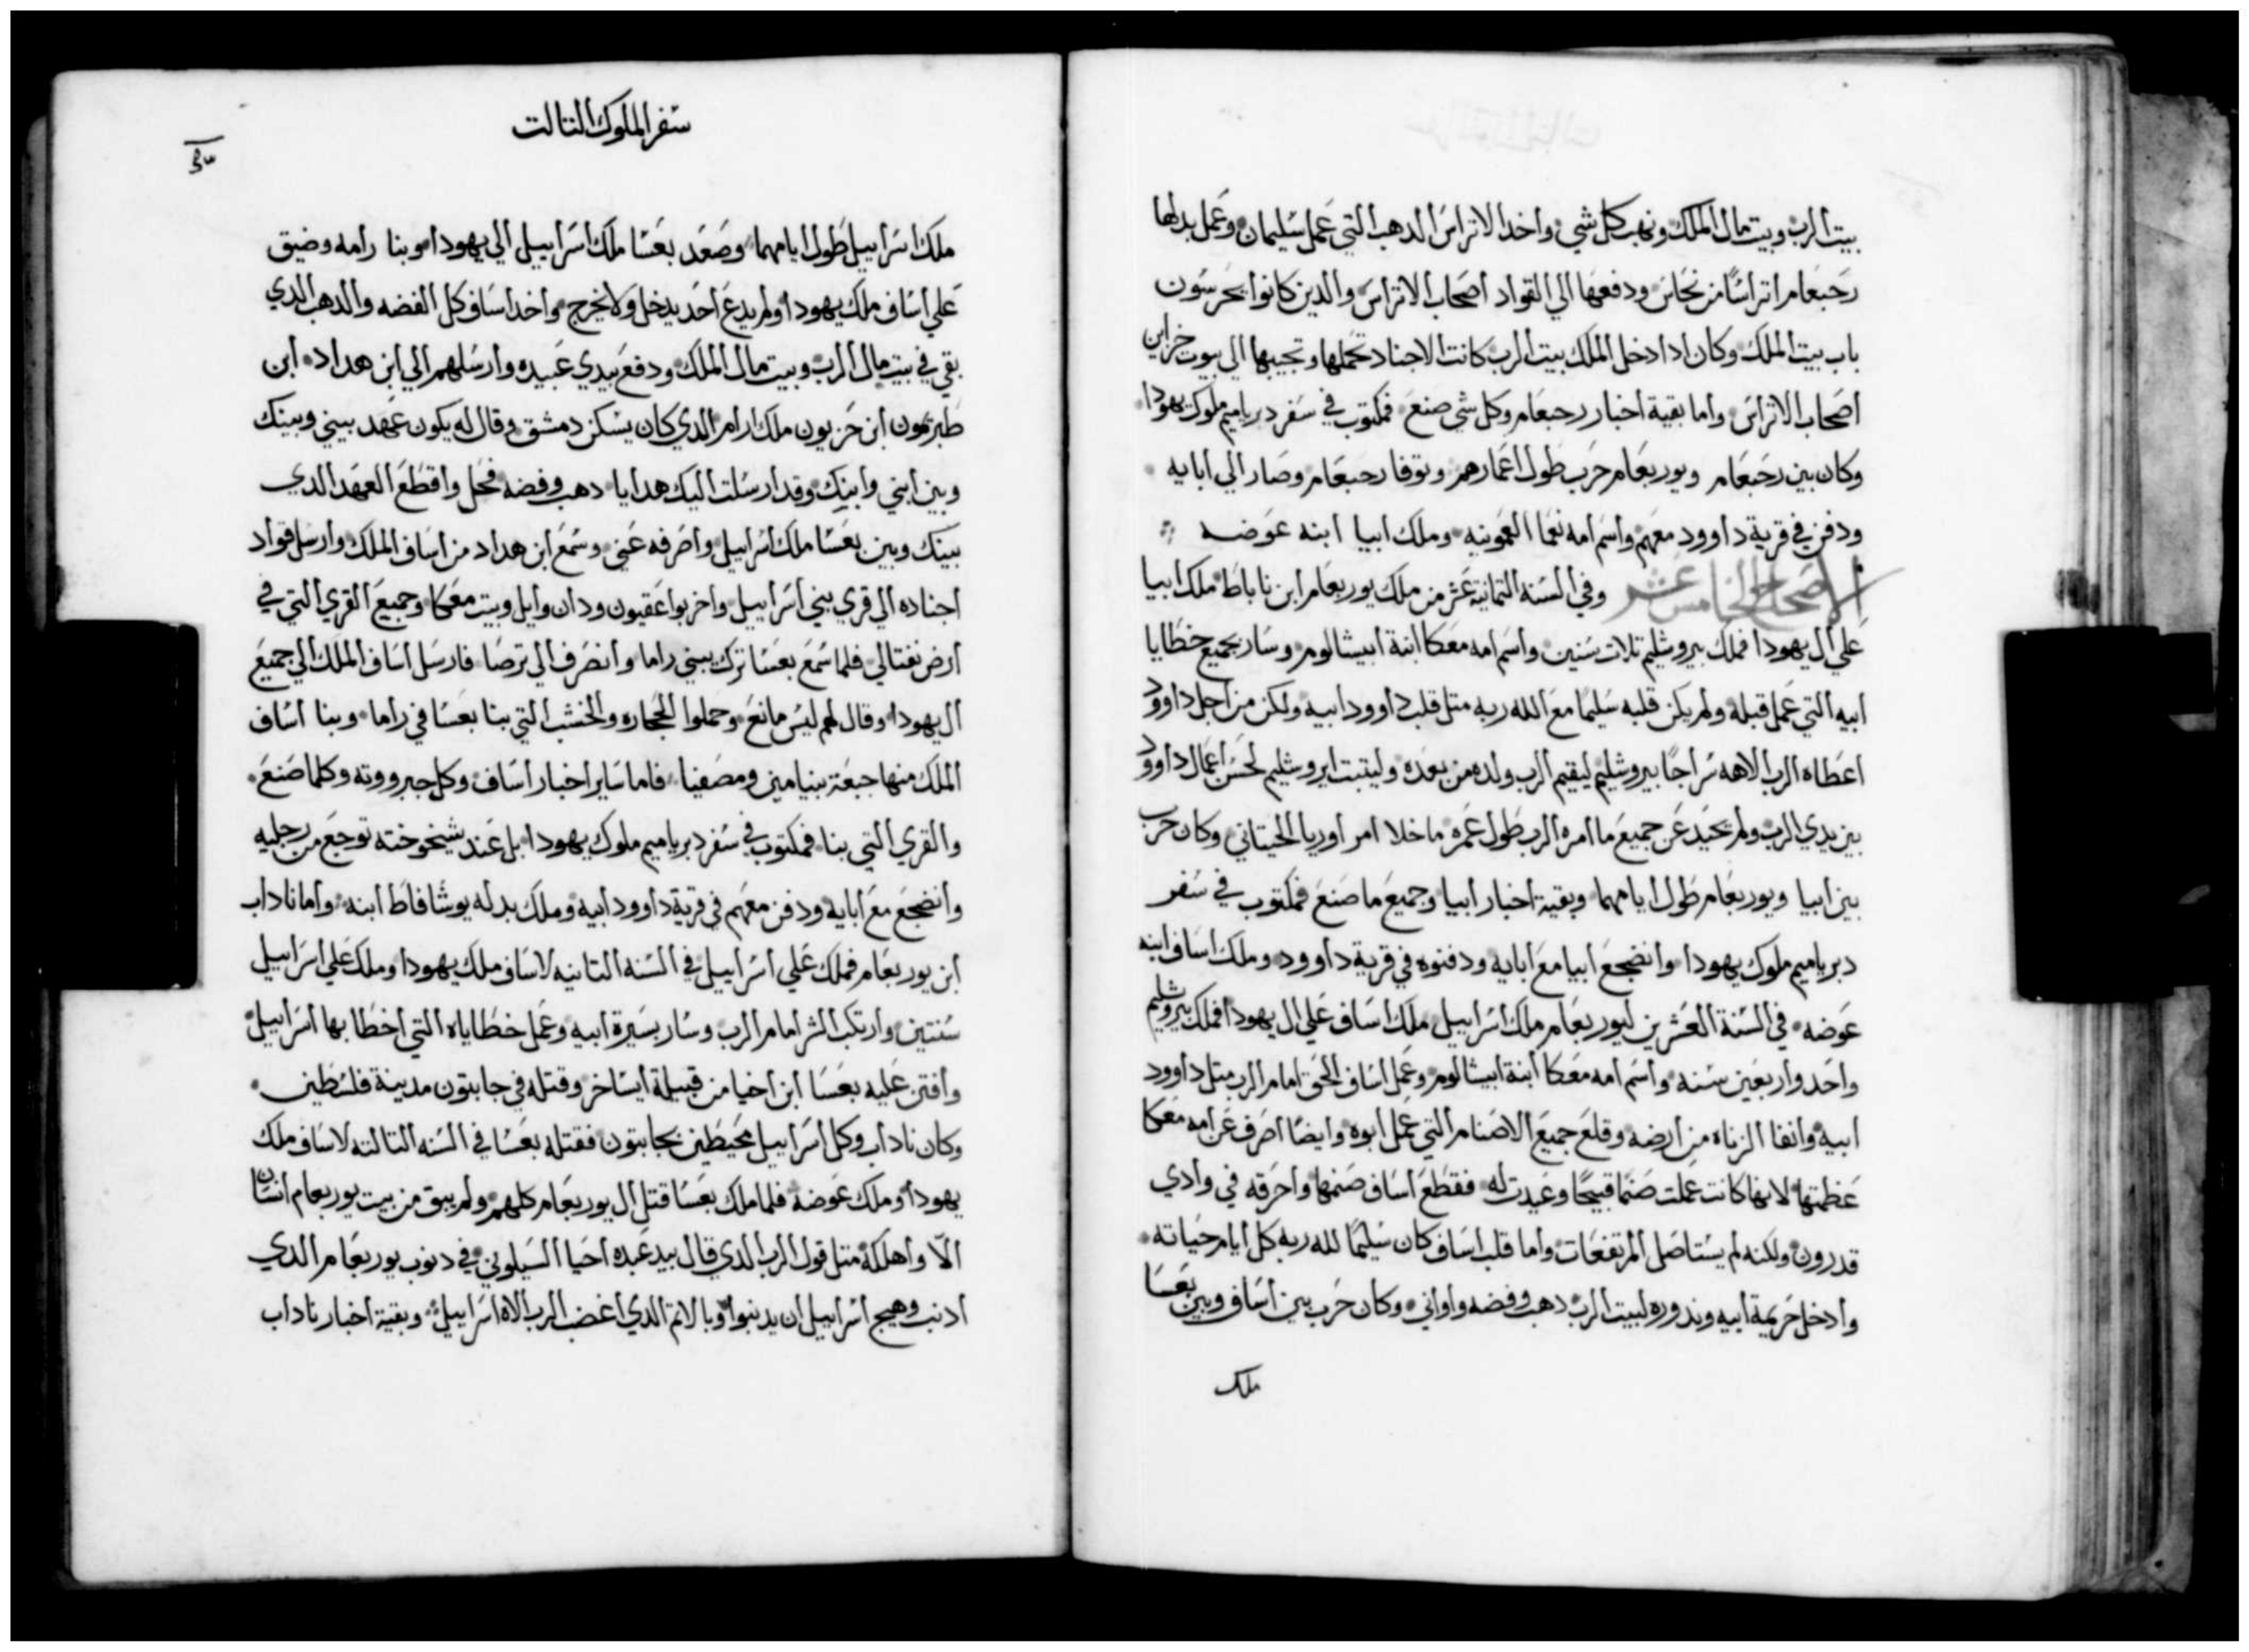 بيت الرب وبيت مال الملك ونهب كل شي واخد الاتراس الدهب التي عمل سليمان وعمل بدلها
رحبعام اتراسًا من نحاس ودفعها الي القواد اصحاب الاتراس والدين كانوا يحرسون
باب بيت الملك وكان ادا دخل الملك بيت الرب كانت الاجناد تحملها وتجيبها الي بيوت خزاين
اصحاب الاتراس واما بقية اخبار رحبعام وكل شي صنع فمكتوب في سفر دبرياميم ملوك يهودا
وكان بين رحبعام ويوربعام حرب طول اعمارهم وتوفا رحبعام وصار الي ابايه
ودفن في قرية داوود معهم واسم امه نعما العمونيه وملك ابيا ابنه عوضه
الاصحاح الخامس عشر وفي السنه التمانية عشر من ملك يوربعام ابن ناباط ملك ابيا
علي ال يهودا فملك بيروشليم تلات سنين واسم امه معكا ابنة ابيشالوم وسار بجميع خطايا
ابيه التي عمل قبله ولم يكن قلبه سليمًا مع الله ربه متل قلب داوود ابيه ولكن من اجل داوود
اعطاه الرب الاهه سراجًا بيروشليم ليقيم الرب ولده من بعده وليتبت ايروشليم لحسن اعمال داوود
بين يدي الرب ولم يحيد عن جميع ما امره الرب طول عمره ما خلا امر اوريا الحيتاني وكان حرب
بين ابيا ويوربعام طول ايامهما وبقية اخبار ابيا وجميع ما صنع فمكتوب في سفر
دبرياميم ملوك يهودا وانضجع ابيا مع ابايه ودفنوه في قرية داوود وملك اساف ابنه
عوضه في السنة العشرين ليوربعام ملك اسراييل ملك اساف علي ال يهودا فملك بيروشليم
واحد واربعين سنه واسم امه معكا ابنة ابيشالوم وعمل اساف الحق امام الرب متل داوود
ابيه وانفا الزناه من ارضه وقلع جميع الاصنام التي عمل ابوه وايضًا اصرف عن امه معكا
عظمتها لانها كانت عملت صنما قبيحًا وعبدت له فقطع اساف صنمها واحرقه في وادي
قدرون ولكنه لم يستاصل المرتفعات واما قلب اساف كان سليمًا لله ربه كل ايام حياته
وادخل حريمة ابيه وندوره لبيت الرب دهب وفضه واواني وكان حرب بين اساف وبين بعسا
ملك
سفر الملوك التالت
ملك اسراييل طول ايامهما وصعد بعسا ملك اسراييل الي يهودا وبنا رامه وضيق
علي اساف ملك يهودا ولم يدع احد يدخل ولا يخرج واخد اساف كل الفضه والدهب الدي
بقي في بيت مال الرب وبيت مال الملك ودفع بيدي عبيده وارسلهم الي ابن هداد ابن
طبرمون ابن حزيون ملك ارام الدي كان يسكن دمشق وقال له يكون عهد بيني وبينك
وبين ابني وابينك وقد ارسلت اليك هدايا دهب وفضه فحل واقطع العهد الدي
بينك وبين بعسا ملك اسراييل واصرفه عني وسمع ابن هداد من اساف الملك وارسل قواد
اجناده الي قري بني اسراييل واخربوا عقبون ودان وايل وبيت معكا وجميع القري التي في
ارض نفتالي فلما سمع بعسا ترك يبني راما وانصرف الي ترصا فارسل اساف الملك الي جميع
ال يهودا وقال لهم ليس مانع وحملوا الحجاره والخشب التي بنا بعسا في راما وبنا اساف
الملك منها جبعة بنيامين ومصفيا فاما ساير اخبار اساف وكل جبرووته وكلما صنع
والقري التي بنا فمكتوب في سفر دبرياميم ملوك يهودا بل عند شيخوخته توجع من رجليه
وانضجع مع ابايه ودفن معهم في قرية داوود ابيه وملك بدله يوشافاط ابنه واما ناداب
ابن يوربعام فملك علي اسراييل في السنه التانيه لاساف ملك يهودا وملك علي اسراييل
سنتين وارتكب الشر امام الرب وسار بسيرة ابيه وعمل خطاياه التي اخطا بها اسراييل
وافتن عليه بعسا ابن اخيا من قبيلة ايساخر وقتله في جابتون مدينة فلسطين
وكان ناداب وكل اسراييل محيطين بجابتون فقتله بعسا في السنه التالته لاساف ملك
يهودا وملك عوضه فلما ملك بعسا قتل ال يوربعام كلهم ولم يبق من بيت يوربعام انسان
الّا واهلكه متل قول الرب الدي قال بيد عبده احيا السيلوني في دنوب يوربعام الدي
ادنب وهيج اسراييل ان يدنبوا وبالاتم الدي اغضب الرب الاه اسراييل وبقية اخبار ناداب